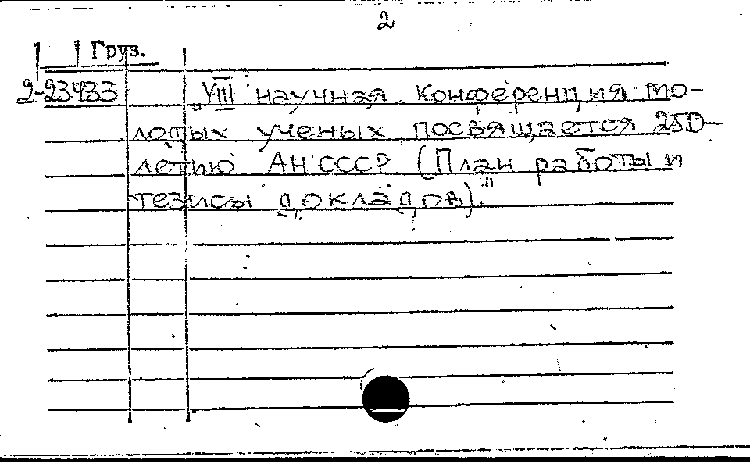 2
Груз.
2-23433 „VIII научная конференция мо-
лодых ученых посвящается 250-
летию АН СССР (План работы и
тезисы докладов)."